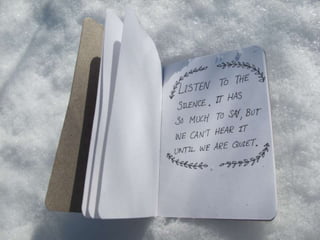 LISTEN TO THE
SILENCE. IT HAS
SO MUCH TO SAY, BUT
WE CAN'T HEAR IT
UNTIL WE ARE QUIET.